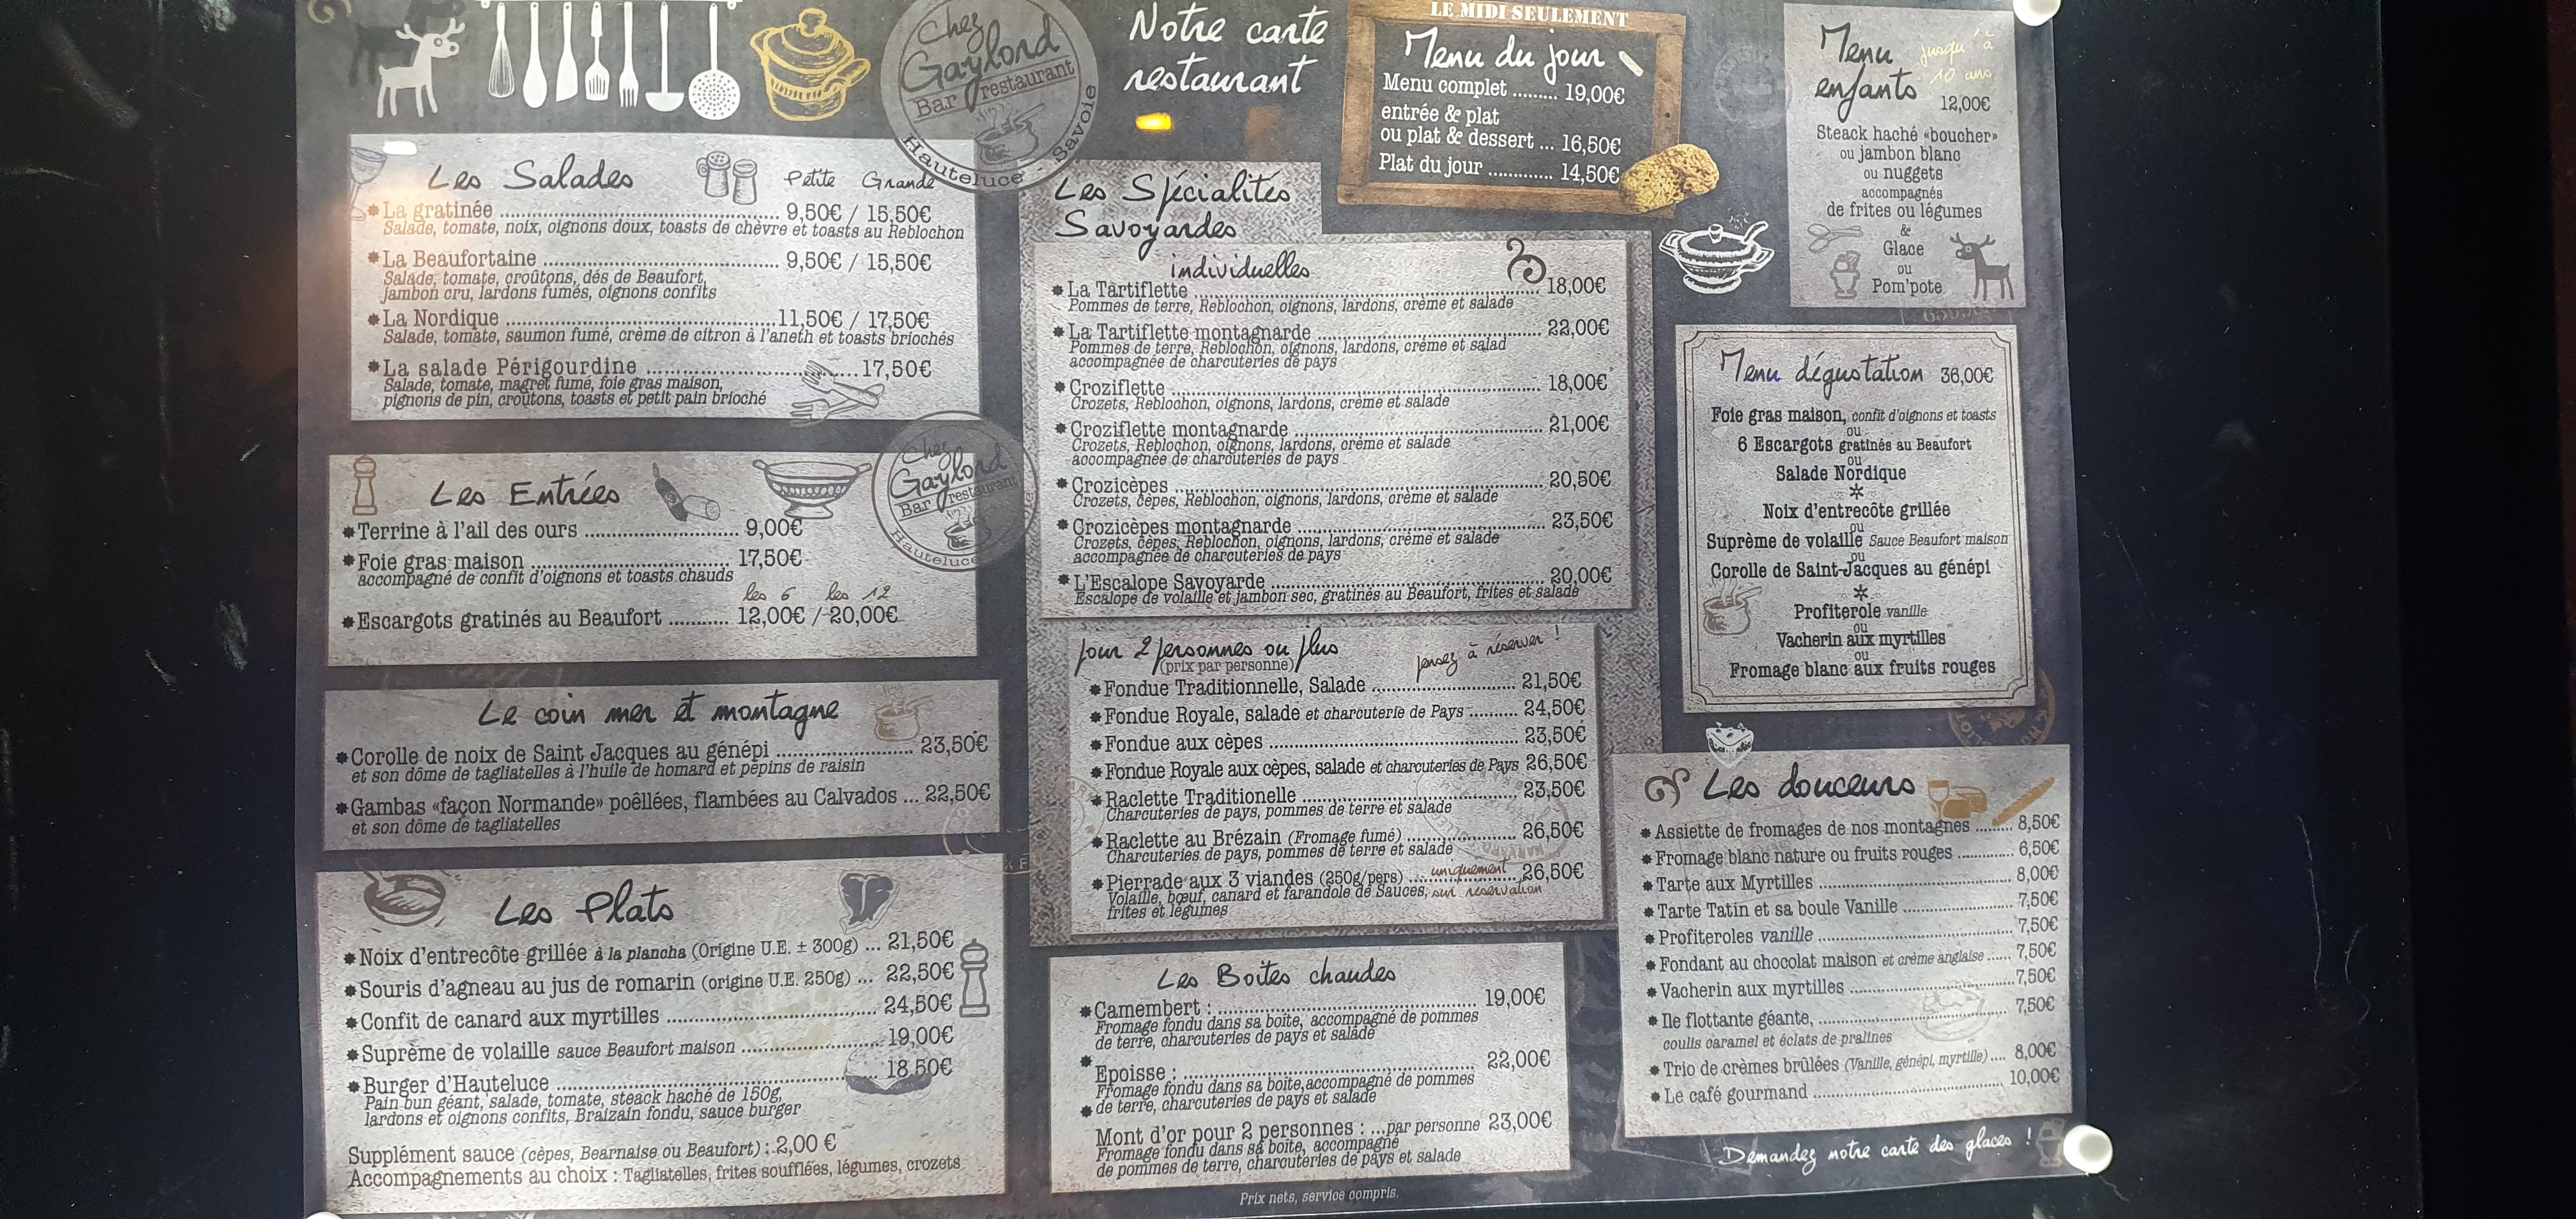 Chez
Gaylord
Bar restaurant
Hauteluce - Savoie
Notre carte
restaurant
LE MIDI SEULEMENT
Menu du jour
Menu complet ......... 19,00€
entrée & plat
ou plat & dessert ... 16,50€
Plat du jour ............. 14,50€
Menu jusqu'à
enfants 10 ans
12,00€
Steack haché «boucher»
ou jambon blanc
ou nuggets
accompagnés
de frites ou légumes
&
Glace
ou
Pom'pote
Les Salades Petite Grande
La gratinée ........ 9,50€ / 15,50€
Salade, tomate, noix, oignons doux, toasts de chèvre et toasts au Reblochon
La Beaufortaine ........ 9,50€ / 15,50€
Salade, tomate, croûtons, dés de Beaufort,
jambon cru, lardons fumés, oignons confits
La Nordique ........ 11,50€ / 17,50€
Salade, tomate, saumon fumé, crème de citron à l'aneth et toasts briochés
La salade Périgourdine ........ 17,50€
Salade, tomate, magret fumé, foie gras maison,
pignons de pin, croûtons, toasts et petit pain brioché
Chez
Gaylord
Bar restaurant
Hauteluce
Les Entrées
Terrine à l'ail des ours ........ 9,00€
Foie gras maison ........ 17,50€
accompagné de confit d'oignons et toasts chauds
les 6 les 12
Escargots gratinés au Beaufort ........... 12,00€ / 20,00€
Le coin mer et montagne
Corolle de noix de Saint Jacques au génépi ........ 23,50€
et son dôme de tagliatelles à l'huile de homard et pépins de raisin
Gambas «façon Normande» poêllées, flambées au Calvados ... 22,50€
et son dôme de tagliatelles
Les Plats
Noix d'entrecôte grillée à la plancha (Origine U.E. ± 300g) ... 21,50€
Souris d'agneau au jus de romarin (origine U.E. 250g) ... 22,50€
Confit de canard aux myrtilles ........ 24,50€
Suprème de volaille sauce Beaufort maison ........ 19,00€
Burger d'Hauteluce ........ 18,50€
Pain bun géant, salade, tomate, steack haché de 150g,
lardons et oignons confits, Braizain fondu, sauce burger
Supplément sauce (cèpes, Bearnaise ou Beaufort) : 2,00 €
Accompagnements au choix : Tagliatelles, frites soufflées, légumes, crozets
Les Spécialités
Savoyardes
individuelles
La Tartiflette ........ 18,00€
Pommes de terre, Reblochon, oignons, lardons, crème et salade
La Tartiflette montagnarde ........ 22,00€
Pommes de terre, Reblochon, oignons, lardons, crème et salad
accompagnée de charcuteries de pays
Croziflette ........ 18,00€
Crozets, Reblochon, oignons, lardons, crème et salade
Croziflette montagnarde ........ 21,00€
Crozets, Reblochon, oignons, lardons, crème et salade
accompagnée de charcuteries de pays
Crozicèpes ........ 20,50€
Crozets, cèpes, Reblochon, oignons, lardons, crème et salade
Crozicèpes montagnarde ........ 23,50€
Crozets, cèpes, Reblochon, oignons, lardons, crème et salade
accompagnée de charcuteries de pays
L'Escalope Savoyarde ........ 20,00€
Escalope de volaille et jambon sec, gratinés au Beaufort, frites et salade
pour 2 personnes ou plus
(prix par personne) pensez à réserver !
Fondue Traditionnelle, Salade ........ 21,50€
Fondue Royale, salade et charcuterie de Pays .......... 24,50€
Fondue aux cèpes ........ 23,50€
Fondue Royale aux cèpes, salade et charcuteries de Pays 26,50€
Raclette Traditionelle ........ 23,50€
Charcuteries de pays, pommes de terre et salade
Raclette au Brézain (Fromage fumé) ........ 26,50€
Charcuteries de pays, pommes de terre et salade
Pierrade aux 3 viandes (250g/pers) .... uniquement 26,50€
Volaille, bœuf, canard et farandole de Sauces, sur reservation
frites et légumes
Les Boîtes chaudes
Camembert : ........ 19,00€
Fromage fondu dans sa boîte, accompagné de pommes
de terre, charcuteries de pays et salade
Epoisse : ........ 22,00€
Fromage fondu dans sa boîte,accompagné de pommes
de terre, charcuteries de pays et salade
Mont d'or pour 2 personnes : ...par personne 23,00€
Fromage fondu dans sa boîte, accompagné
de pommes de terre, charcuteries de pays et salade
Prix nets, service compris.
Menu dégustation 36,00€
Foie gras maison, confit d'oignons et toasts
ou
6 Escargots gratinés au Beaufort
ou
Salade Nordique
*
Noix d'entrecôte grillée
ou
Suprème de volaille Sauce Beaufort maison
ou
Corolle de Saint-Jacques au génépi
*
Profiterole vanille
ou
Vacherin aux myrtilles
ou
Fromage blanc aux fruits rouges
Les douceurs
Assiette de fromages de nos montagnes ......... 8,50€
Fromage blanc nature ou fruits rouges ............. 6,50€
Tarte aux Myrtilles ........ 8,00€
Tarte Tatin et sa boule Vanille ........ 7,50€
Profiteroles vanille ........ 7,50€
Fondant au chocolat maison et crème anglaise ...... 7,50€
Vacherin aux myrtilles ........ 7,50€
Ile flottante géante, ........ 7,50€
coulis caramel et éclats de pralines
Trio de crèmes brûlées (Vanille, génépi, myrtille).... 8,00€
Le café gourmand ........ 10,00€
Demandez notre carte des glaces !